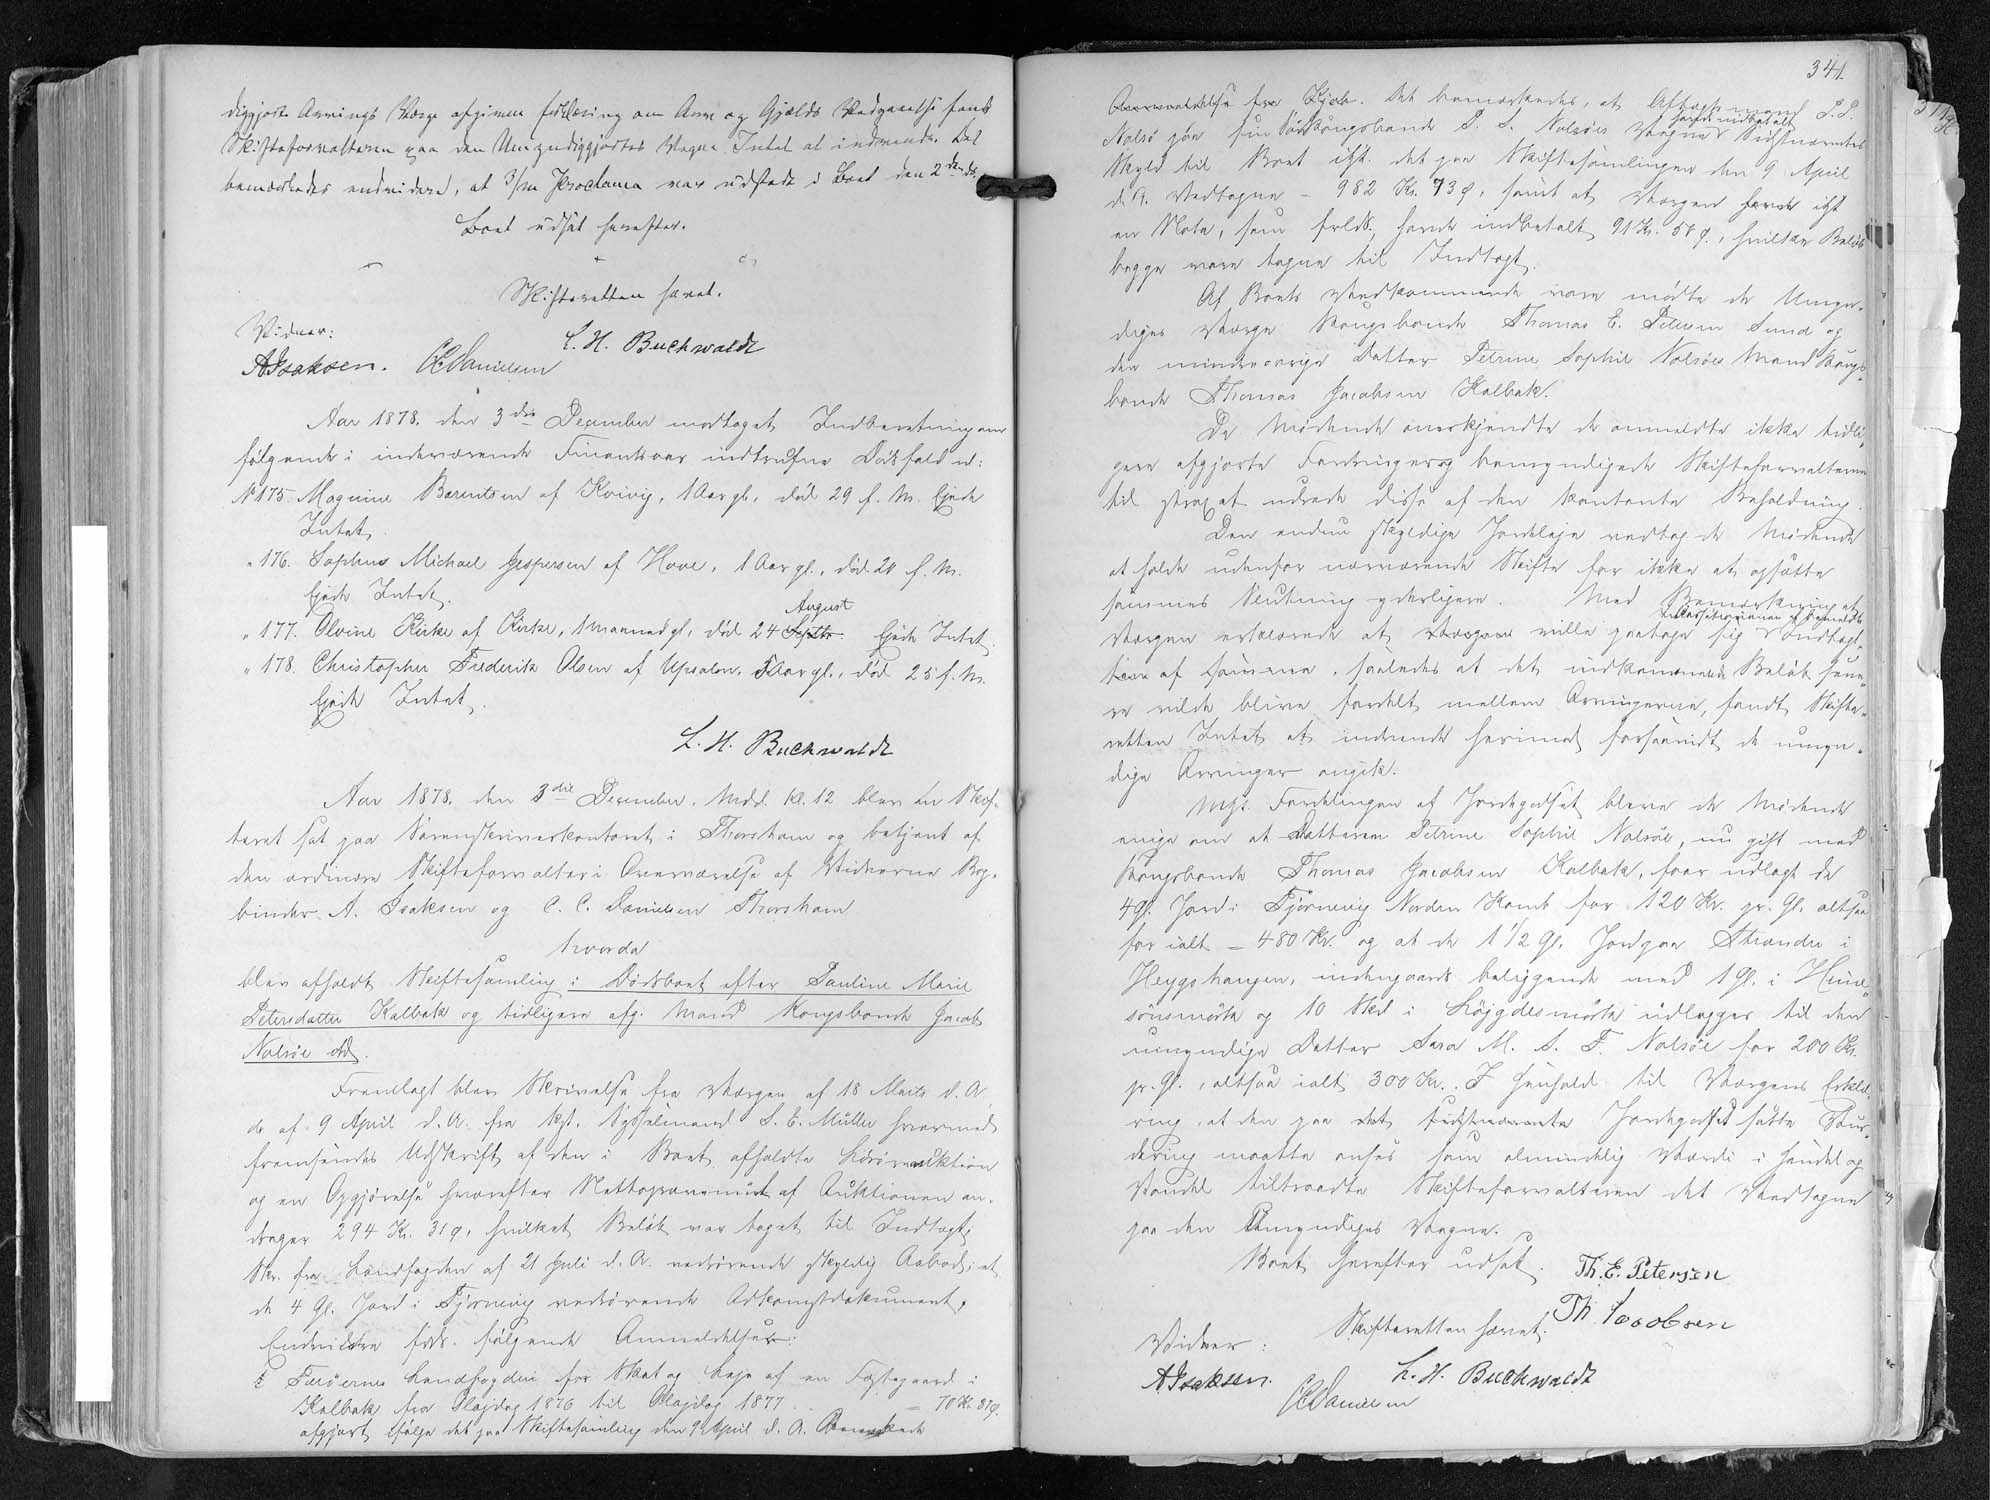 digjorte Arvings Værge afgiven Erklæring om Arv og Gjælds Vedgaaelse fandt
Skifteforvalteren paa den Umyndiggjortes Vegne Intet at indvende. Det
bemærkedes endvidere, at 3/m Proclama var udstedt i Boet den 2den ds.
Boet udsat herefter.
Skifteretten hævet.
Vidner:
L. H. Buchwaldt
A Isaksen. CC Danielsen
Aar 1878. den 3die December modtaget Indberetning om
følgende i indeværende Finantsaar indtrufne Dödsfald n:
No 175. Magnine Barentsen af Kvivig, 1 Aar gl., död 29 f. M. Ejede
Intet.
" 176. Sophus Michael Jespersen af Hove, 1 Aar gl., död 20 f. M.
Ejede Intet.
August
" 177. Olvine Kirke af Kirke, 1 Maaned gl, död 24 Septbr. Ejede Intet.
" 178. Christopher Frederik Olsen af Upsalen, Aar gl., död 25 f. M.
Ejede Intet.
L. H. Buchwaldt
Aar 1878. den 3die December. Mdd. Kl. 12 blev en Skif-
teret sat paa Sorenskriverkontoret i Thorshavn og betjent af
den ordinære Skifteforvalter i Overværelse af Vidnerne Bog-
binder A. Isaksen og C. C. Danielsen Thorshavn
hvorda
blev afholdt Skiftesamling i Dödsboet efter Pauline Marie
Petersdatter Kalbak og tidligere afg. Mand Kongsbonde Jacob
Nolsöe
Fremlagt blev Skrivelse fra Værgen af 18 Marts d. A.
do af 9 April d. A. fra kst. Sysselmand S. E. Müller hvormed
fremsendes Udskrift af den i Boet afholdte Lösöreauktion
og en Opgjörelse hvorefter Nettoprovenüet af Auktionen an-
drager 294 Kr. 31 Ø, hvilket Belöb var taget til Indtægt;
Skr. fra Landfogden af 21 Juli d. A. vedrörende skyldig Aabod; at
de 4 Gl. Jord i Tjörnevig vedrörende Adkomstdokument.
Endvidere frds. fölgende Anmeldelser:
Færöernes Landfogderi for Skat og Leje af en Fæstegaard i
Kalbak fra Fløjdag 1876 til Fløjdag 1877 . . — 70 Kr. 81 Ø.
afgjort ifölge det paa Skiftesamling den 9 April d. A. Bemærkede
341.
Anmeldelse fra Kjøb. Det bemærkedes, at Aftægtsmand P. S.
havde indbetalt
Nolsö for sin Sön Kongsbonde P. S. Nolsöes Vegne Sidstnævntes
Skyld til Boet ifl. det paa Skiftesamlingen den 9 April
d. A. Vedtagne — 982 Kr. 73 Ø, samt at Værgen havde ifl
en Nota, som frlds. havde indbetalt 91 Kr. 56 Ø., hvilke Belöb
begge vare tagne til Indtægt.
Af Boets Vedkommende vare mödte de Umyn-
diges Værge Kongsbonde Thomas E. Petersen Sund og
den mindreaarige Datter Petrine Sophie Nolsöes Mand Kongs-
bonde Thomas Jacobsen Kalbak.
De Mödende anerkjendte de anmeldte ikke tidli-
gere afgjorte Fordringer og bemyndigede Skifteforvalteren
til strax at udrede disse af den kontante Beholdning.
Den endnu skyldige Jordleje vedtog de Mödende
at holde udenfor nærværende Skifte for ikke at opsætte
sammes Slutning yderligere. Med Bemærkning at
Værgen erklærede at Værgen ville paatage sig Indtægt-
ten af samme, saaledes at det indkommende Belöb sene-
re vilde blive fordelt mellem Arvingerne, fandt Skifte-
retten Intet at indvende herimod forsaavidt de umyn-
dige Arvinger angik.
Mht. Fordelingen af Jordegodset bleve de Mödende
enige om at Datteren Petrine Sophie Nolsöe, nu gift med
Kongsbonde Thomas Jacobsen Kalbak, faar udlagt de
4 Gl. Jord i Tjörnevig Norden Komb for 120 Kr. pr. Gl. altsaa
for ialt — 480 Kr. og at de 1 1/2 Gl. Jord paa Strandre i
Heygshaugen, indengaards beliggende med 1 Gl. i Huse-
sonsmörk og 10 Skd i Höjgdesmörk udlægges til den
umyndige Datter Sara M. S. F. Nolsöe for 200 Kr.
pr. Gl., altsaa ialt 300 Kr. I Henhold til Værgens Erklæ-
ring, at den paa det sidstnævnte Jordegods satte Vur-
dering maatte anses som almindelig Værdi i Handel og
Vandel tiltraadte Skifteforvalteren det Vedtagne
paa den Umyndiges Vegne.
Boet herefter udsat.
Th. E. Petersen
Skifteretten hævet.
Th. Jacobsen
Vidner:
L. H. Buchwaldt
A Isaksen.
CC Danielsen